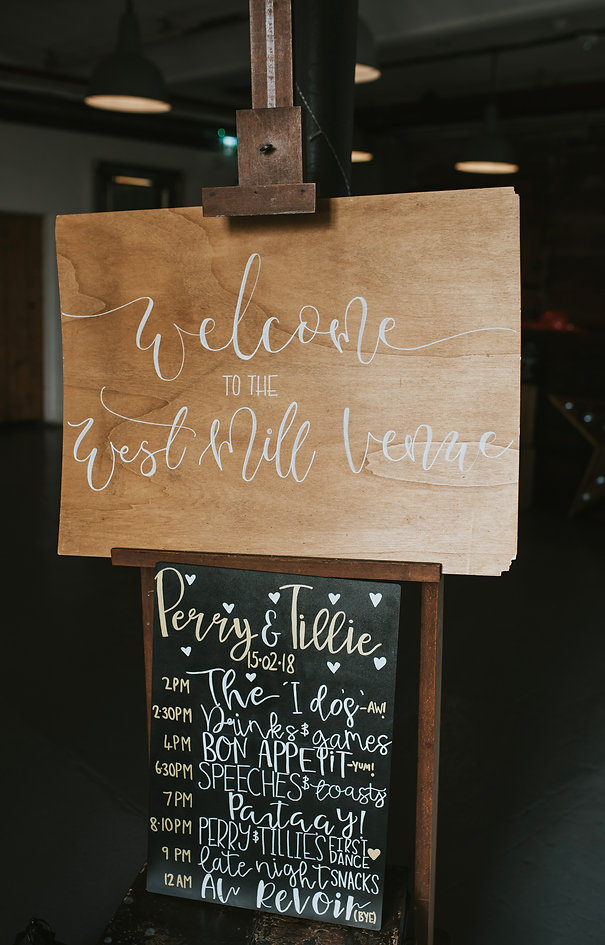 Welcome
TO THE
West Mill Venue
Perry & Tillie
15·02·18
2PM The 'I do's' -AW!
2·30PM Drinks & games
4PM BON APPETIT -YUM!
6·30PM SPEECHES & toasts
7PM Partaay!
8·10PM PERRY & TILLIES FIRST DANCE
9 PM late night SNACKS
12 AM Au Revoir (BYE)